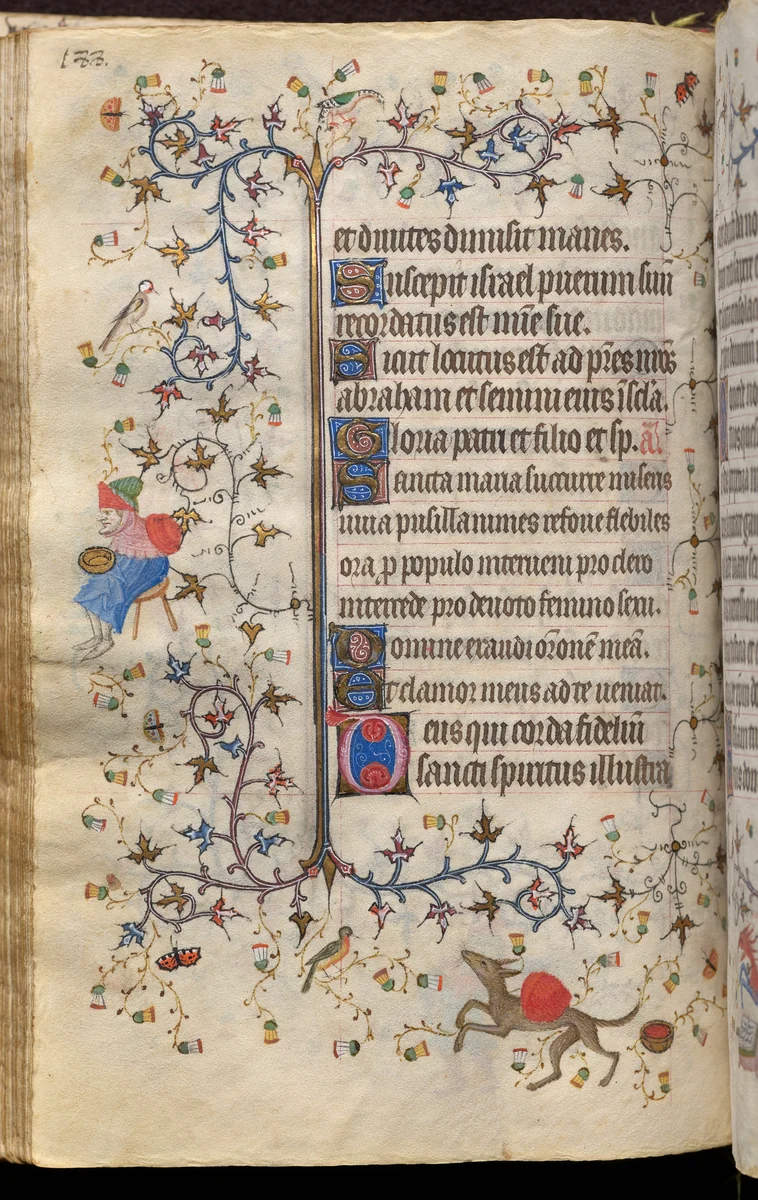 133.
et divites dimisit inanes.
Suscepit israel puerum suū
recordatus est mīe sue.
Sicut locutus est ad p̄res nr̄os
abraham et semini eius ī sc̄la.
Gloria patri et filio et sp. a͞.
Sancta maria succurre miseris
iuva pusillanimes refove flebiles
ora p̱ populo interveni pro clero
intercede pro devoto femineo sexu.
Domine exaudi or̄onē meā.
Et clamor meus ad te veniat.
Deus qui corda fideliū
sancti spiritus illustra